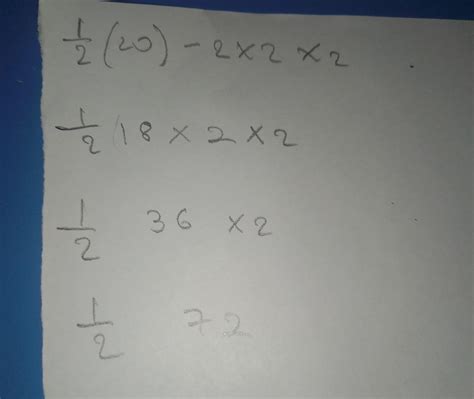 1/2 (20) - 2 × 2 × 2
1/2 (18 × 2 × 2
1/2 36 × 2
1/2 72